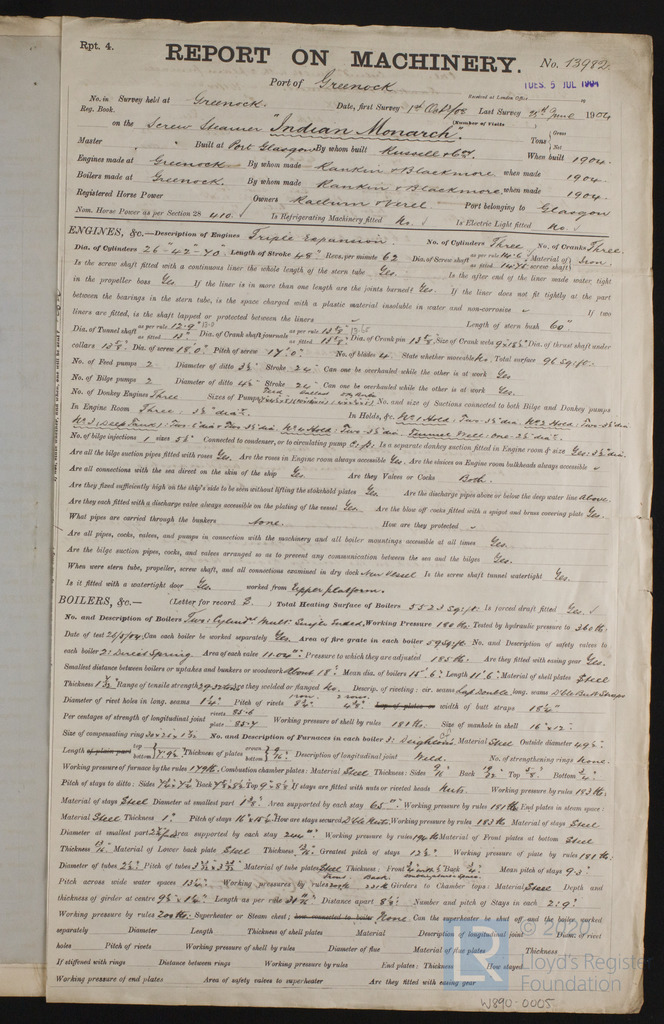 Rpt. 4.
REPORT ON MACHINERY. No. 13982
Port of Greenock
TUES. 5 JUL 1904
Received at London Office
No. in Survey held at Greenock. Date, first Survey 1st Last Survey 1904
Reg. Book. (Number of Visits
on the Screw Steamer "Indian Monarch" Tons Gross Net
Master Built at Port Glasgow By whom built Russell & Co. When built 1904
Engines made at Greenock By whom made Rankin & Blackmore when made 1904
Boilers made at Greenock. By whom made Rankin & Blackmore when made 1904
Registered Horse Power Owners Raeburn & Verel Port belonging to Glasgow
Nom. Horse Power as per Section 28 410. Is Refrigerating Machinery fitted No. Is Electric Light fitted No.
ENGINES, &c.—Description of Engines Triple Expansion. No. of Cylinders Three No. of Cranks Three
Dia. of Cylinders 26"-42"-70" Length of Stroke 48" Revs. per minute 62 Dia. of Screw shaft as per rule as fitted Material of screw shaft Iron
Is the screw shaft fitted with a continuous liner the whole length of the stern tube Yes. Is the after end of the liner made water tight
in the propeller boss Yes If the liner is in more than one length are the joints burned? Yes. If the liner does not fit tightly at the part
between the bearings in the stern tube, is the space charged with a plastic material insoluble in water and non-corrosive If two
liners are fitted, is the shaft lapped or protected between the liners Length of stern bush 60"
Dia. of Tunnel shaft as per rule 12.9" as fitted 13" Dia. of Crank shaft journals as per rule as fitted Dia. of Crank pin Size of Crank webs Dia. of thrust shaft under
collars Dia. of screw 18'.0" Pitch of screw 17'.0" No. of blades 4. State whether moveable No Total surface 96 sq. ft.
No. of Feed pumps 2 Diameter of ditto 3½" Stroke 24" Can one be overhauled while the other is at work Yes
No. of Bilge pumps 2 Diameter of ditto Stroke 24" Can one be overhauled while the other is at work Yes.
No. of Donkey Engines Three Sizes of Pumps No. and size of Suctions connected to both Bilge and Donkey pumps
In Engine Room Three. 3½" dia. In Holds, &c. No 1 Hold: Two-3½" dia. No 2 Hold: Two-3½" dia
No 4 Hold: Two-3½" dia. Tunnel Well: One-2½" dia.
No. of bilge injections 1 sizes Connected to condenser, or to circulating pump C.P. Is a separate donkey suction fitted in Engine room & size Yes: 3½" dia.
Are all the bilge suction pipes fitted with roses Yes. Are the roses in Engine room always accessible Yes. Are the sluices on Engine room bulkheads always accessible
Are all connections with the sea direct on the skin of the ship Yes Are they Valves or Cocks Both.
Are they fixed sufficiently high on the ship's side to be seen without lifting the stokehold plates Yes Are the discharge pipes above or below the deep water line Above.
Are they each fitted with a discharge valve always accessible on the plating of the vessel Yes. Are the blow off cocks fitted with a spigot and brass covering plate Yes.
What pipes are carried through the bunkers None. How are they protected
Are all pipes, cocks, valves, and pumps in connection with the machinery and all boiler mountings accessible at all times Yes.
Are the bilge suction pipes, cocks, and valves arranged so as to prevent any communication between the sea and the bilges Yes.
When were stern tube, propeller, screw shaft, and all connections examined in dry dock New Vessel Is the screw shaft tunnel watertight Yes.
Is it fitted with a watertight door Yes worked from Upper platform.
BOILERS, &c.— (Letter for record ) Total Heating Surface of Boilers 5523 sq. ft. Is forced draft fitted Yes.
No. and Description of Boilers Two: Cylind. Mult: Single Ended. Working Pressure 180 lb: Tested by hydraulic pressure to 360 lb:
Date of test 26/5/04 Can each boiler be worked separately Yes. Area of fire grate in each boiler 59 sq. ft. No. and Description of safety valves to
each boiler 2: Direct Spring. Area of each valve 11.04" Pressure to which they are adjusted 185 lb. Are they fitted with easing gear Yes.
Smallest distance between boilers or uptakes and bunkers or woodwork About 18". Mean dia. of boilers 15'.6" Length 11'.6" Material of shell plates Steel
Thickness Range of tensile strength Are they welded or flanged No. Descrip. of riveting: cir. seams Lap Double long. seams D'ble Butt Straps
Diameter of rivet holes in long. seams 1¼" Pitch of rivets Lap of plates or width of butt straps 18½"
Per centages of strength of longitudinal joint rivets 85.6 plate 85.7 Working pressure of shell by rules 181 lb. Size of manhole in shell 16" x 12"
Size of compensating ring No. and Description of Furnaces in each boiler 3: Deightons Material Steel Outside diameter 49½"
Length of plain part top bottom Thickness of plates crown bottom Description of longitudinal joint Weld. No. of strengthening rings None.
Working pressure of furnace by the rules 179 lb. Combustion chamber plates: Material Steel Thickness: Sides Back Top Bottom
Pitch of stays to ditto: Sides Back Top If stays are fitted with nuts or riveted heads Nuts. Working pressure by rules 183 lb:
Material of stays Steel Diameter at smallest part Area supported by each stay 65" Working pressure by rules 181 lb End plates in steam space:
Material Steel Thickness 1" Pitch of stays How are stays secured D'ble Nuts. Working pressure by rules 183 Material of stays Steel
Diameter at smallest part Area supported by each stay 244" Working pressure by rules Material of Front plates at bottom Steel
Thickness Material of Lower back plate Steel Thickness Greatest pitch of stays Working pressure of plate by rules 181 lb:
Diameter of tubes 2½" Pitch of tubes Material of tube plates Steel Thickness: Front Back Mean pitch of stays
Pitch across wide water spaces Working pressures by rules Girders to Chamber tops: Material Steel Depth and
thickness of girder at centre Length as per rule Distance apart Number and pitch of Stays in each 2: 9"
Working pressure by rules 200 lb. Superheater or Steam chest; how connected to boiler None Can the superheater be shut off and the boiler worked
separately Diameter Length Thickness of shell plates Material Description of longitudinal joint Diam. of rivet
holes Pitch of rivets Working pressure of shell by rules Diameter of flue Material of flue plates Thickness
If stiffened with rings Distance between rings Working pressure by rules End plates: Thickness How stayed
Working pressure of end plates Area of safety valves to superheater Are they fitted with easing gear
© 2020
Lloyd's Register
Foundation
W890-0005